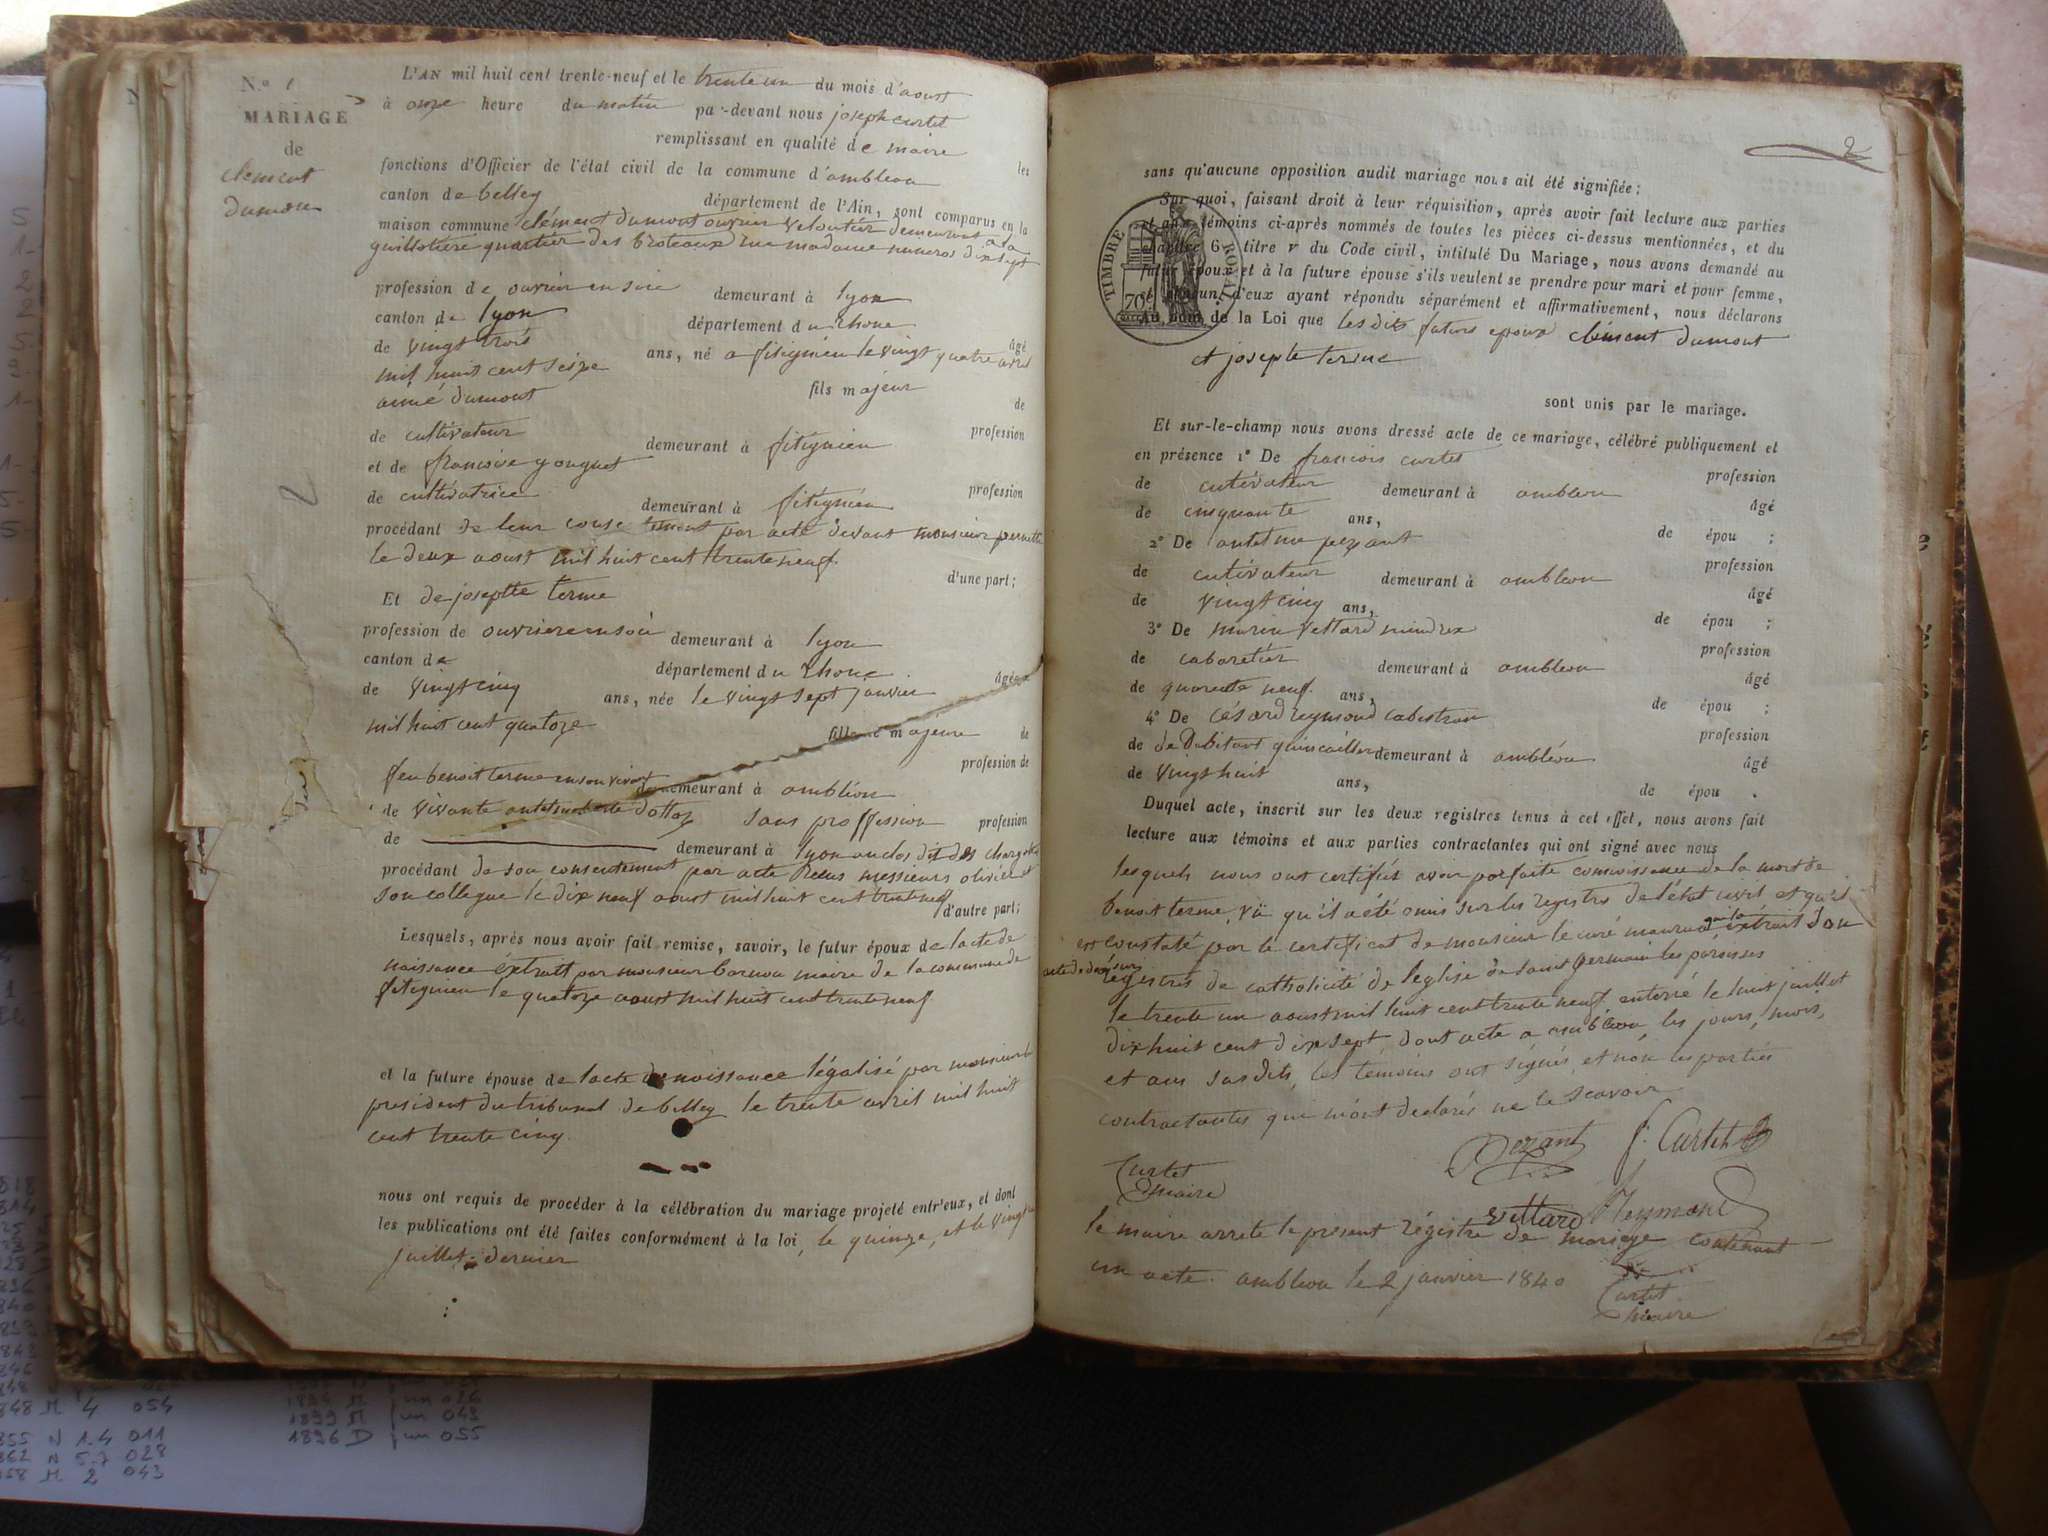 N.o 1
MARIAGE
de
clement
dumon
L'AN mil huit cent trente-neuf et le trente un du mois d'aoust
à onze heure du matin pa-devant nous joseph curtet
remplissant en qualité de maire les
fonctions d'Officier de l'état civil de la commune d'ambleon
canton de belley département de l'Ain, sont comparus en la
maison commune clément dumont ouvrier veloutier demeurant a la
guillotiere quartier des broteaux rue madame numero dix sept
profession de ouvrier en soie demeurant à lyon
canton de lyon département du rhone âgé
de vingt trois ans, né a fitignieu le vingt quatre avril
mil huit cent seize fils majeur de
aimé dumont profession
de cultivateur demeurant à fitignieu
et de francoise gouguet profession
de cultivatrice demeurant à fitignieu
procédant de leur consentement par acte devant monsieur
le deux aoust mil huit cent trente neuf.
d'une part;
Et de josephte terme
profession de ouvriere en soie demeurant à lyon
canton de département du rhone âgée
de vingt cinq ans, née le vingt sept janvier
mil huit cent quatoze fille majeure de
feu benoit terme en son vivant profession de
demeurant à ambléon
de vivante dottoz sans proffession profession
de demeurant à lyon au clos dit des
procédant de son consentement par acte Recus messieurs olivier et
son collegue le dix neuf aoust mil huit cent trente neuf
d'autre part;
Lesquels, après nous avoir fait remise, savoir, le futur époux de lacte de
naissance éxtratt par monsieur maire de la commune de
fitignieu le quatoze aoust mil huit cent trente neuf.
et la future épouse de lacte de naissance légalisé par monsieur le
president du tribunal de belley le trente avril mil huit
cent trente cinq.
nous ont requis de procéder à la célébration du mariage projeté entr'eux, et dont
les publications ont été faites conformément à la loi, le quinze, et le vingt
juillet dernier
2
sans qu'aucune opposition audit mariage nous ait été signifiée;
Sur quoi, faisant droit à leur réquisition, après avoir fait lecture aux parties
et aux témoins ci-après nommés de toutes les pièces ci-dessus mentionnées, et du
chapitre 6 titre v du Code civil, intitulé Du Mariage, nous avons demandé au
futur époux et à la future épouse s'ils veulent se prendre pour mari et pour femme,
et chacun d'eux ayant répondu séparément et affirmativement, nous déclarons
Au nom de la Loi que les dits futurs epoux clément dumont
et josepte terme
TIMBRE ROYAL
70
sont unis par le mariage.
Et sur-le-champ nous avons dressé acte de ce mariage, célébré publiquement et
en présence 1° De francois curtet profession
de cutivateur demeurant à ambleon âgé
de cinquante ans, de épou ;
2° De antelme pezant profession
de cutivateur demeurant à ambleon âgé
de vingt cinq ans, de épou ;
3° De vettard profession
de cabaretier demeurant à ambleon âgé
de quarente neuf. ans, de épou ;
4° De césard reymond profession
de debitant quincaillier demeurant à ambléon âgé
de vingt huit ans, de épou .
Duquel acte, inscrit sur les deux registres tenus à cet effet, nous avons fait
lecture aux témoins et aux parties contractantes qui ont signé avec nous
lesquels nous ont certifié avoir parfaite connoissance de la mort de
benoit terme, vü qu'il a été omis sur les registres de l'état civil et qu'il
est constaté par le certificat de monsieur le curé qui la éxtrait d'on
acte de deces sur
régistres de catholicité de l'église de saint germain les paroisses
le trente un aoust mil huit cent trente neuf. enterré le huit juillet
dix huit cent dix sept, dont acte a ambléon, les jours, mois,
et ans susdits, les témoins ont signés et nón les parties
contractantes qui m'ont declarés ne le scavoir.
Pezant f. Curtet
Curtet
maire
Vettard Reymond
le maire arrete le present régistre de mariage contenant
un acte. ambleon le 2 janvier 1840
Curtet
maire
848 M 4 054
855 N 1.4 011
862 N 5.7 028
868 M 2 043
1899 M un 049
1896 D un 055